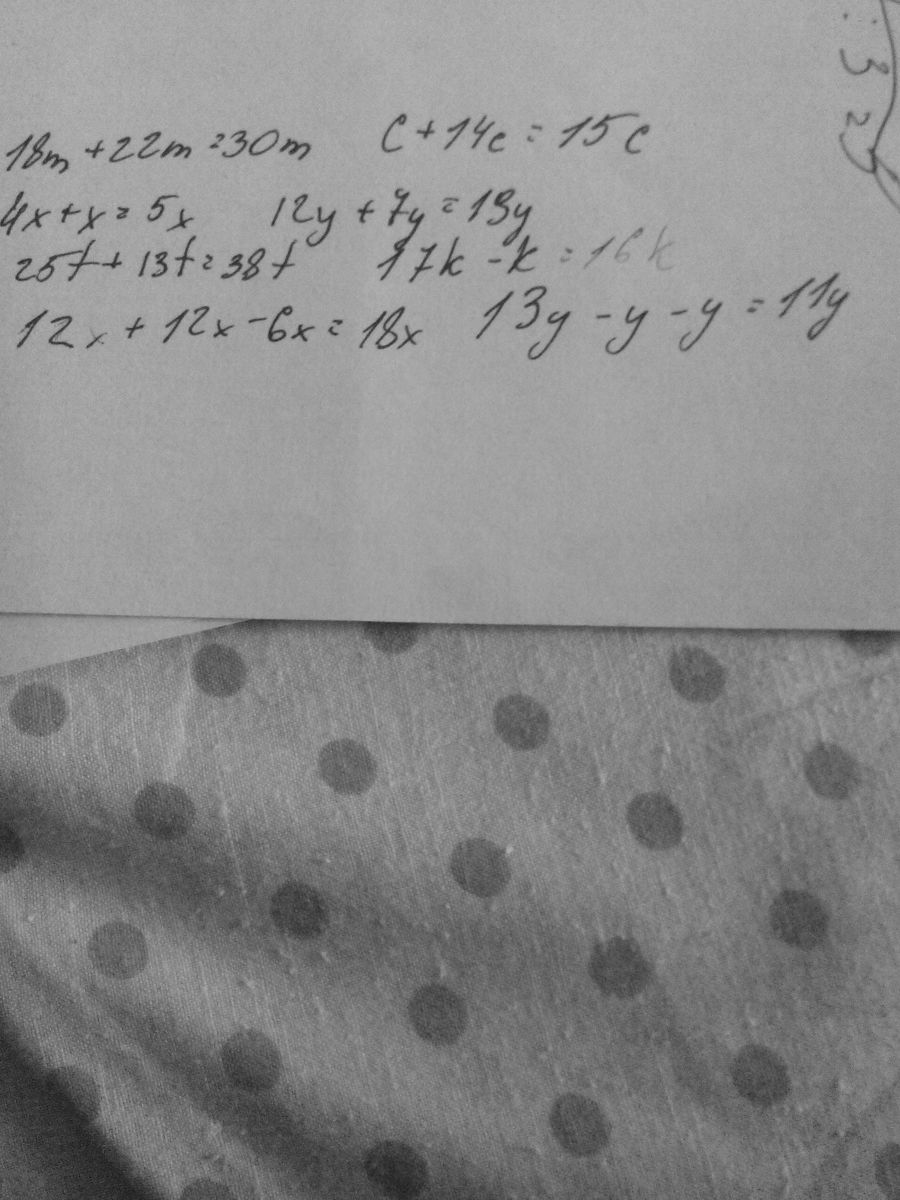 18m + 22m = 30m c + 14c = 15c
4x + x = 5x 12y + 7y = 19y
25t + 13t = 38t 17k - k = 16k
12x + 12x - 6x = 18x 13y - y - y = 11y